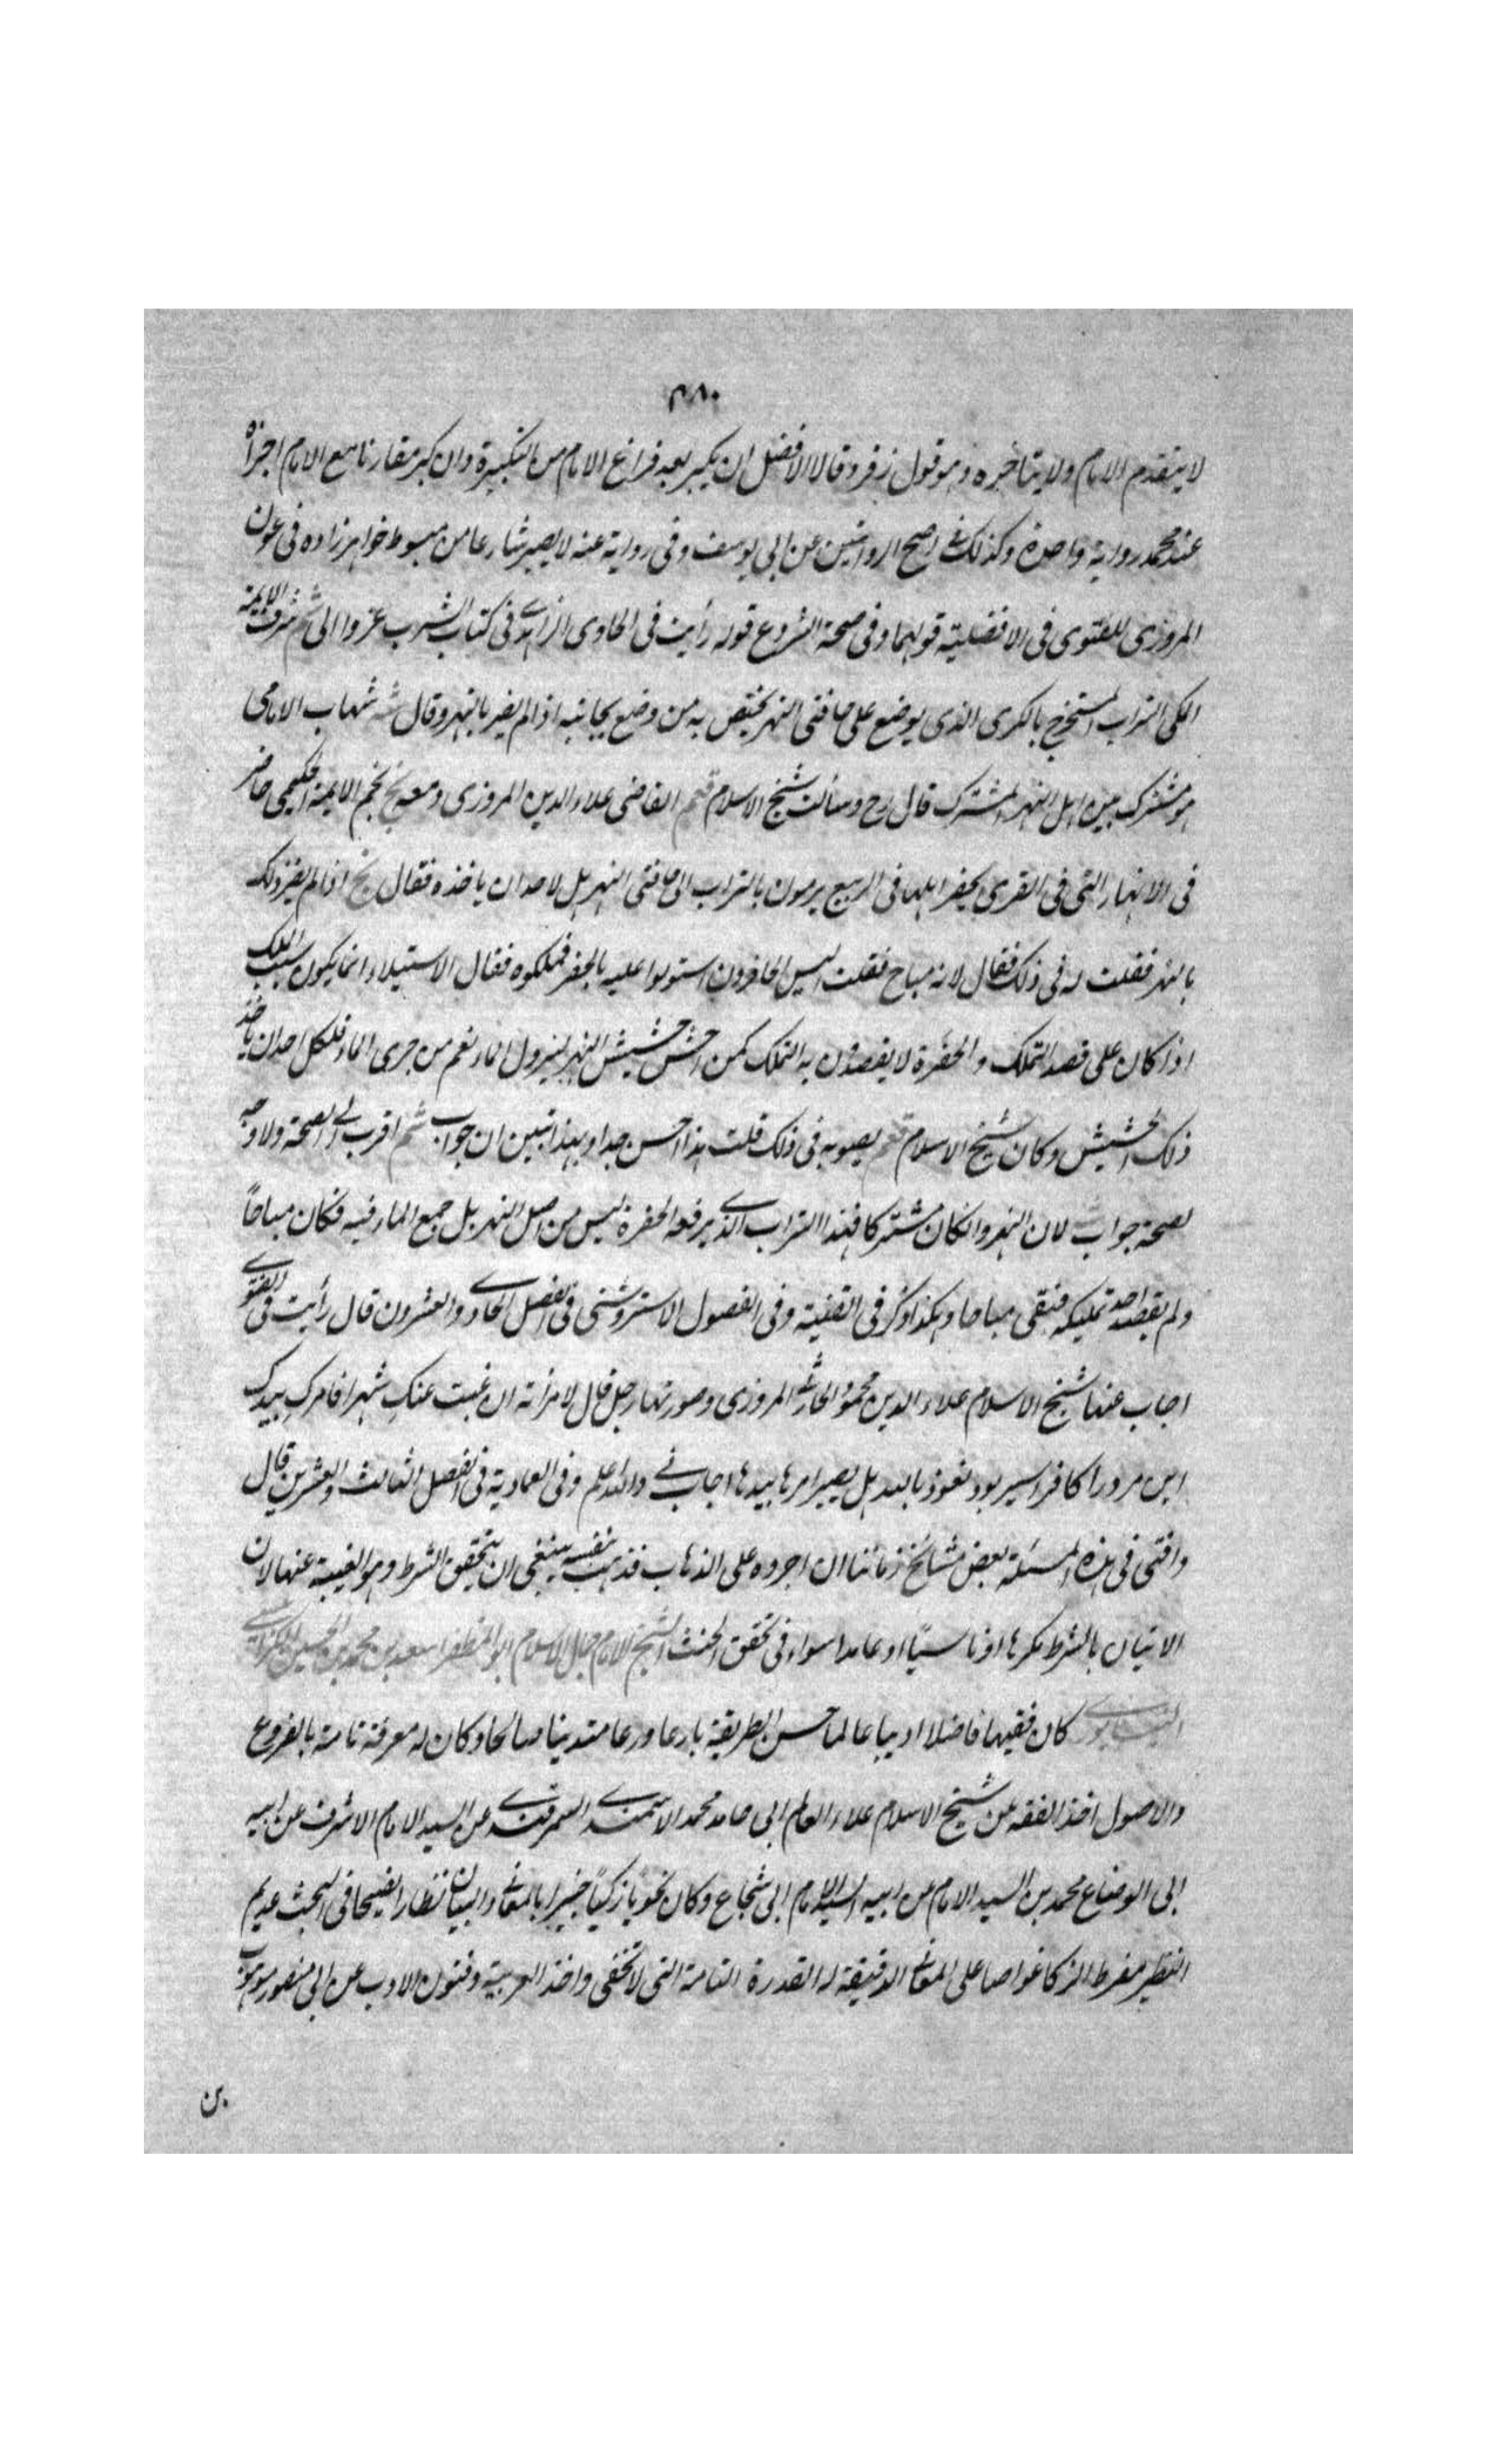 ٣٨٠
لا يتقدم الامام ولا يتأخره وهو قول زفر وقالا الافضل ان يكبر بعد فراغ الامام من التكبيرة وان كبر مقارنا مع الامام اجزأه
عند محمد رواية واحدة وكذلك في اصح الروايتين عن ابي يوسف وفي رواية عنه لا يصير شارعا من مبسوط خواهرزاده في عون
المروزي للفتوى في الافضلية قولهما وفي صحة الشروع قوله رأيت في الحاوي الزاهدي في كتاب الشرب عزوا الى شم شرف الايمة
المكي التراب المستخرج بالكري الذي يوضع على حافتي النهر يختص به من وضع بجانبه اذا لم يضر بالنهر وقال شه شهاب الامامي
هو مشترك بين اهل النهر المشترك قال رح وسألت شيخ الاسلام القاضي علاء الدين المروزي ومعه نجم الايمة الحكيمي حاضر
في الانهار التي في القرى يحفر اهلها في الربيع يرمون بالتراب الى حافتي النهر هل لاحد ان ياخذه فقال اذا لم يضر ذلك
بالنهر فقلت له في ذلك فقال لانه مباح فقلت اليس الحافرون استولوا عليه بالحفر فملكوه فقال الاستيلاء انما يكون سبب الملك
اذا كان على قصد التملك والحفرة لا يقصدون به التملك كمن احتش حشيش النهر ليزول المانع من جري الماء فلكل احد ان ياخذ
ذلك الحشيش وكان شيخ الاسلام يصوبه في ذلك قلت هذا احسن جدا وبهذا تبين ان جواب شم اقرب الى الصحة ولا وجه
لصحة جواب لان النهر وان كان مشتركا فهذا التراب الذي يرفعه الحفرة ليس من اصل النهر بل جمع الماء فيه فكان مباحاً
ولم يقصد احد تمليكه فبقي مباحا وهكذا ذكر في القنية وفي الفصول الاستروشني في الفصل الحادي والعشرون قال رأيت في الفتوى
اجاب عنها شيخ الاسلام علاء الدين محمود الحارثي المروزي وصورتها رجل قال لامرأته ان غبت عنك شهرا فامرك بيدك
اين مرد را كافر اسير برد نعوذ بالله هل يصير امرها بيدها اجاب ني والله اعلم وفي العمادية في الفصل الثالث والعشرين قال
وافتى في هذه المسئلة بعض مشايخ زماننا ان اجروه على الذهاب فذهب بنفسه ينبغي ان يتحقق الشرط وهو الغيبة عنها لان
الاتيان بالشرط مكرها او ناسيا او عامدا سواء في تحقق الحنث الشيخ الامام جمال الاسلام ابو المظفر اسعد بن محمد بن الحسين الكرابيسي
النيسابوري كان فقيها فاضلا اديبا عالما حسن الطريقة بارعا ورعا متدينا صالحا وكان له معرفة تامة بالفروع
والاصول اخذ الفقه عن شيخ الاسلام علاء العالم ابي حامد محمد الاسمندي السمرقندي عن السيد الامام الاشرف عن ابيه
ابي الوضاع محمد بن السيد الامام عن ابيه السيد الامام ابي شجاع وكان نحويا زكيّا خبيرا بالمعاني والبيان نظارا فصيحا في البحث عديم
النظير مفرط الزكا غواصا على المعاني الدقيقة له القدرة التامة التي لا تخفى واخذ العربية وفنون الادب عن ابي منصور موهوب
بن